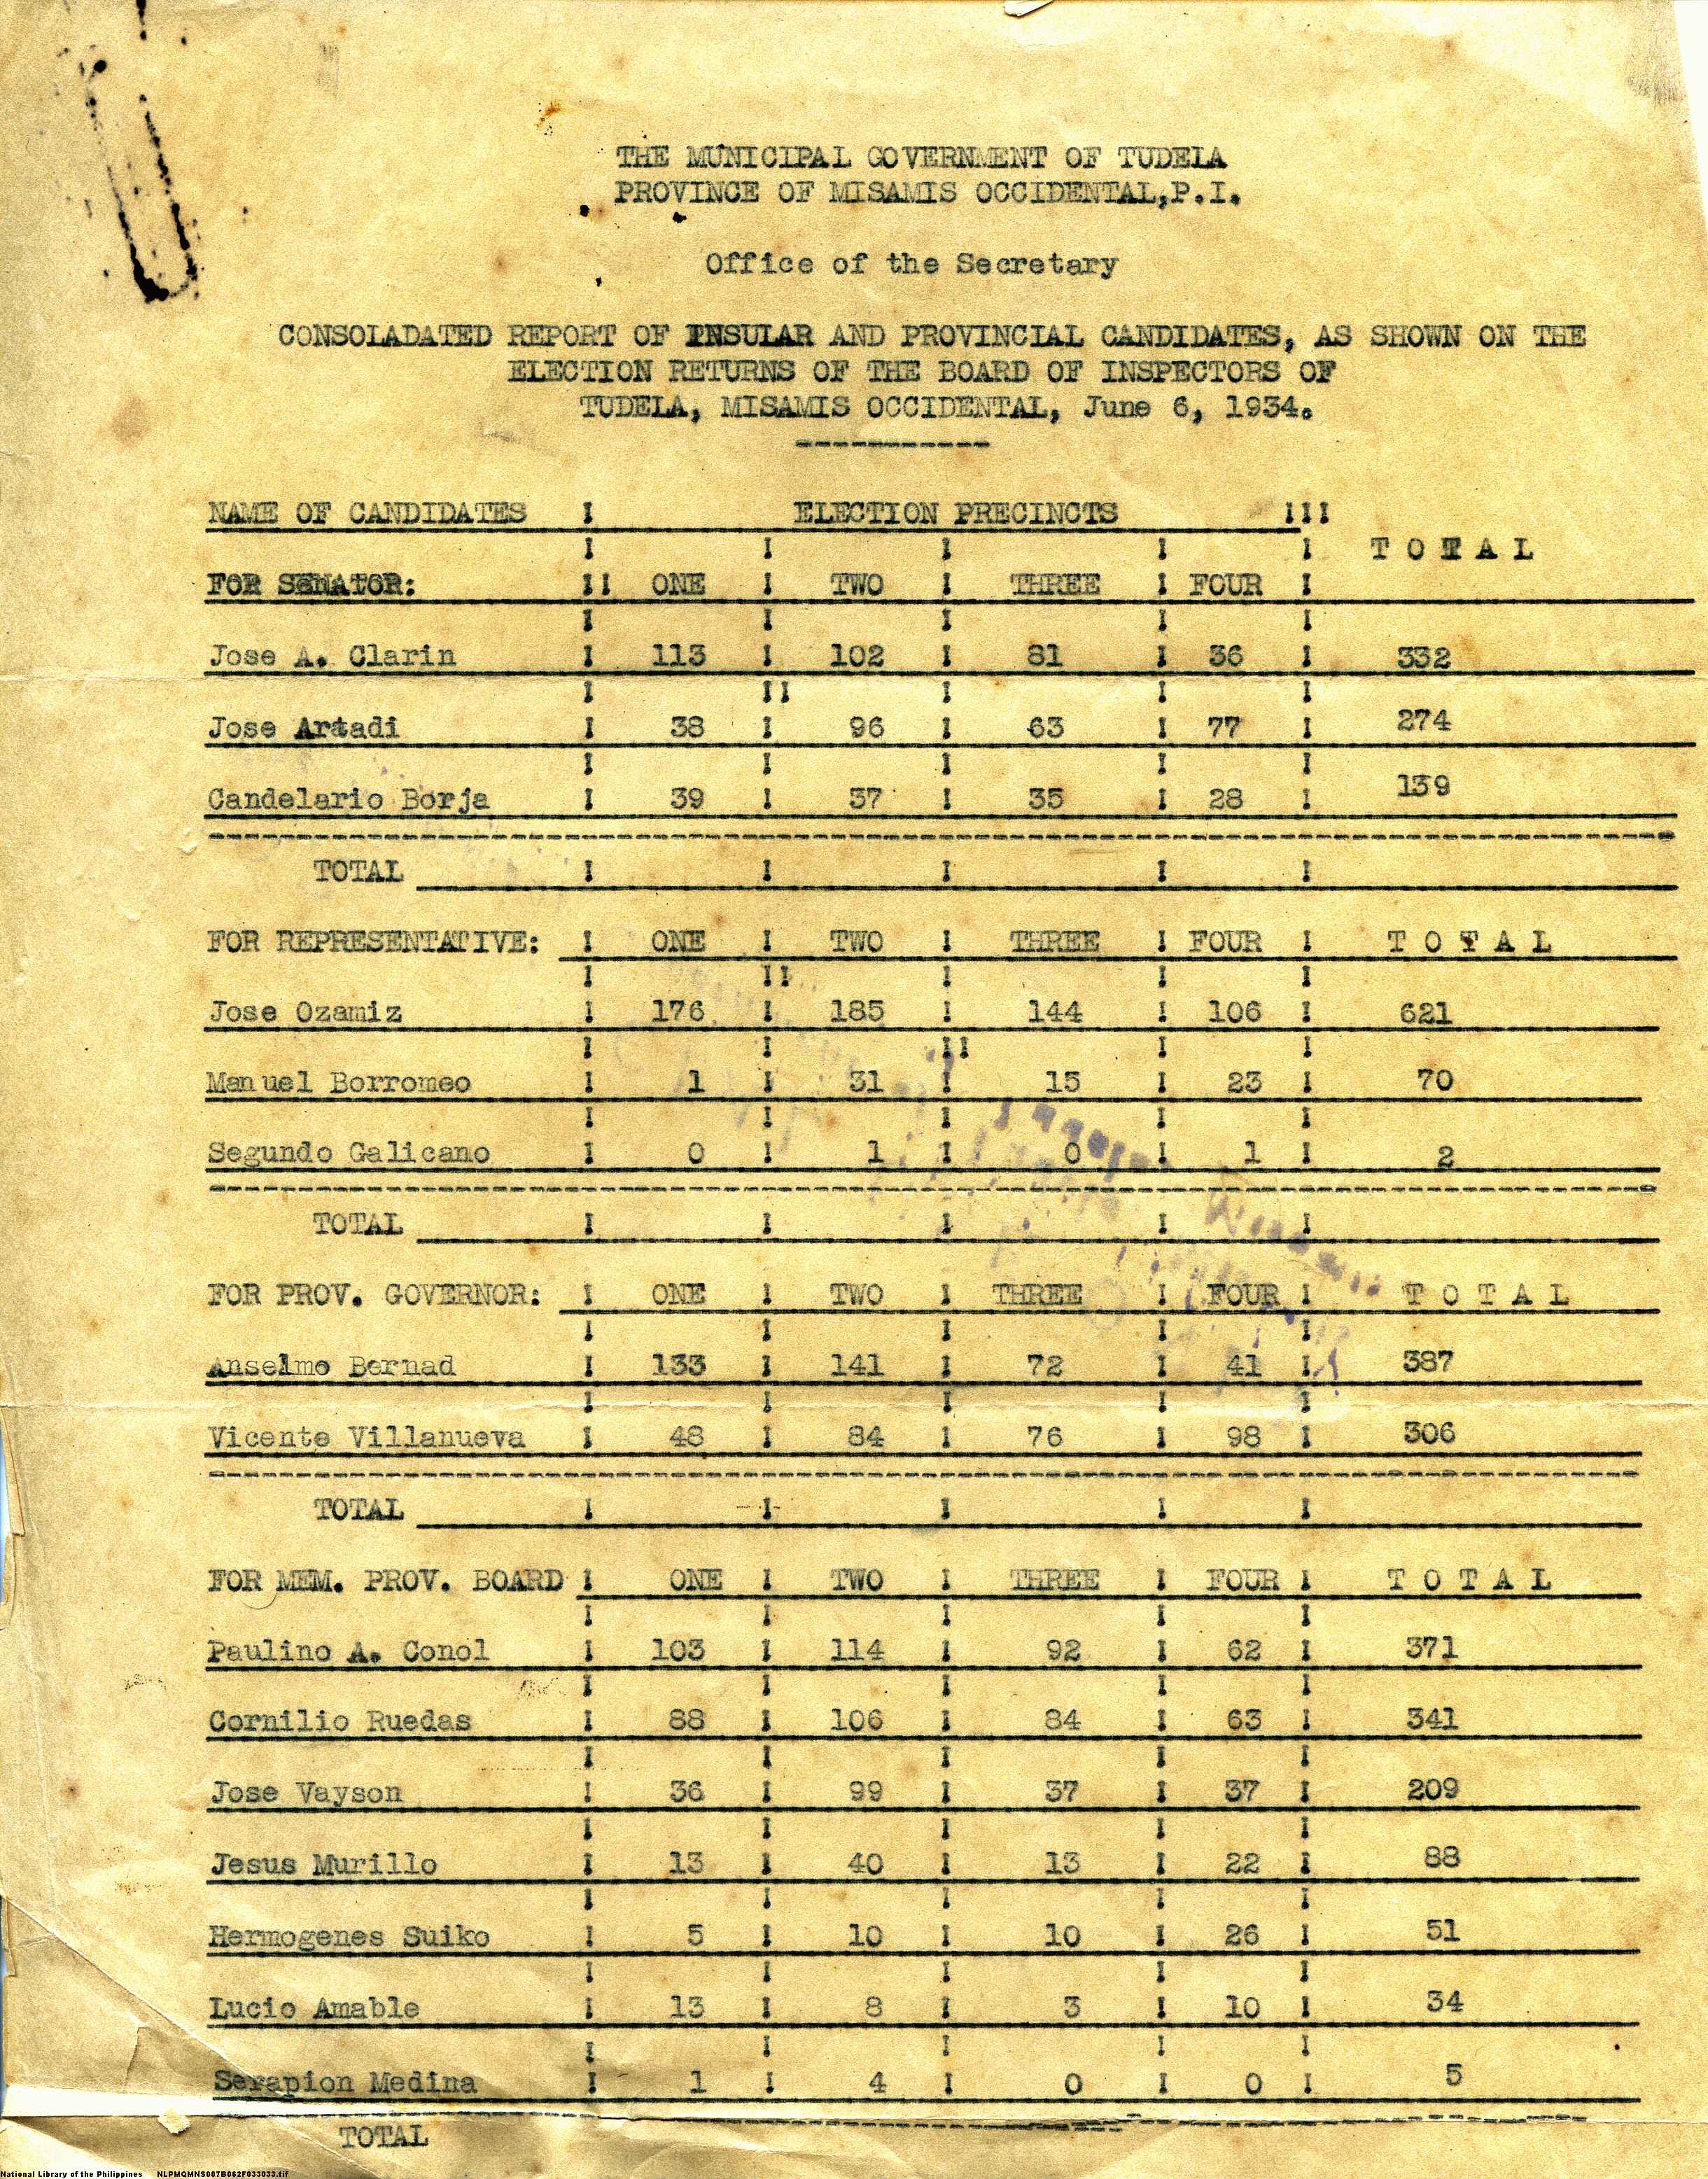 THE MUNICIPAL GOVERNMENT OF TUDELA
PROVINCE OF MISAMIS OCCIDENTAL,P.I.
Office of the Secretary
CONSOLADATED REPORT OF INSULAR AND PROVINCIAL CANDIDATES, AS SHOWN ON THE
ELECTION RETURNS OF THE BOARD OF INSPECTORS OF
TUDELA, MISAMIS OCCIDENTAL, June 6, 1934.
NAME OF CANDIDATES ELECTION PRECINCTS
T O T A L
FOR SENATOR: ONE TWO THREE FOUR
Jose A. Clarin 113 102 81 36 332
Jose Artadi 38 96 63 77 274
Candelario Borja 39 37 35 28 139
TOTAL
FOR REPRESENTATIVE: ONE TWO THREE FOUR T O T A L
Jose Ozamiz 176 185 144 106 621
Manuel Borromeo 1 31 15 23 70
Segundo Galicano 0 1 0 1 2
TOTAL
FOR PROV. GOVERNOR: ONE TWO THREE FOUR T O T A L
Anselmo Bernad 133 141 72 41 387
Vicente Villanueva 48 84 76 98 306
TOTAL
FOR MEM. PROV. BOARD ONE TWO THREE FOUR T O T A L
Paulino A. Conol 103 114 92 62 371
Cornilio Ruedas 88 106 84 63 341
Jose Vayson 36 99 37 37 209
Jesus Murillo 13 40 13 22 88
Hermogenes Suiko 5 10 10 26 51
Lucio Amable 13 8 3 10 34
Serapion Medina 1 4 0 0 5
TOTAL
National Library of the Philippines NLPMQMNS007B062F033033.tif